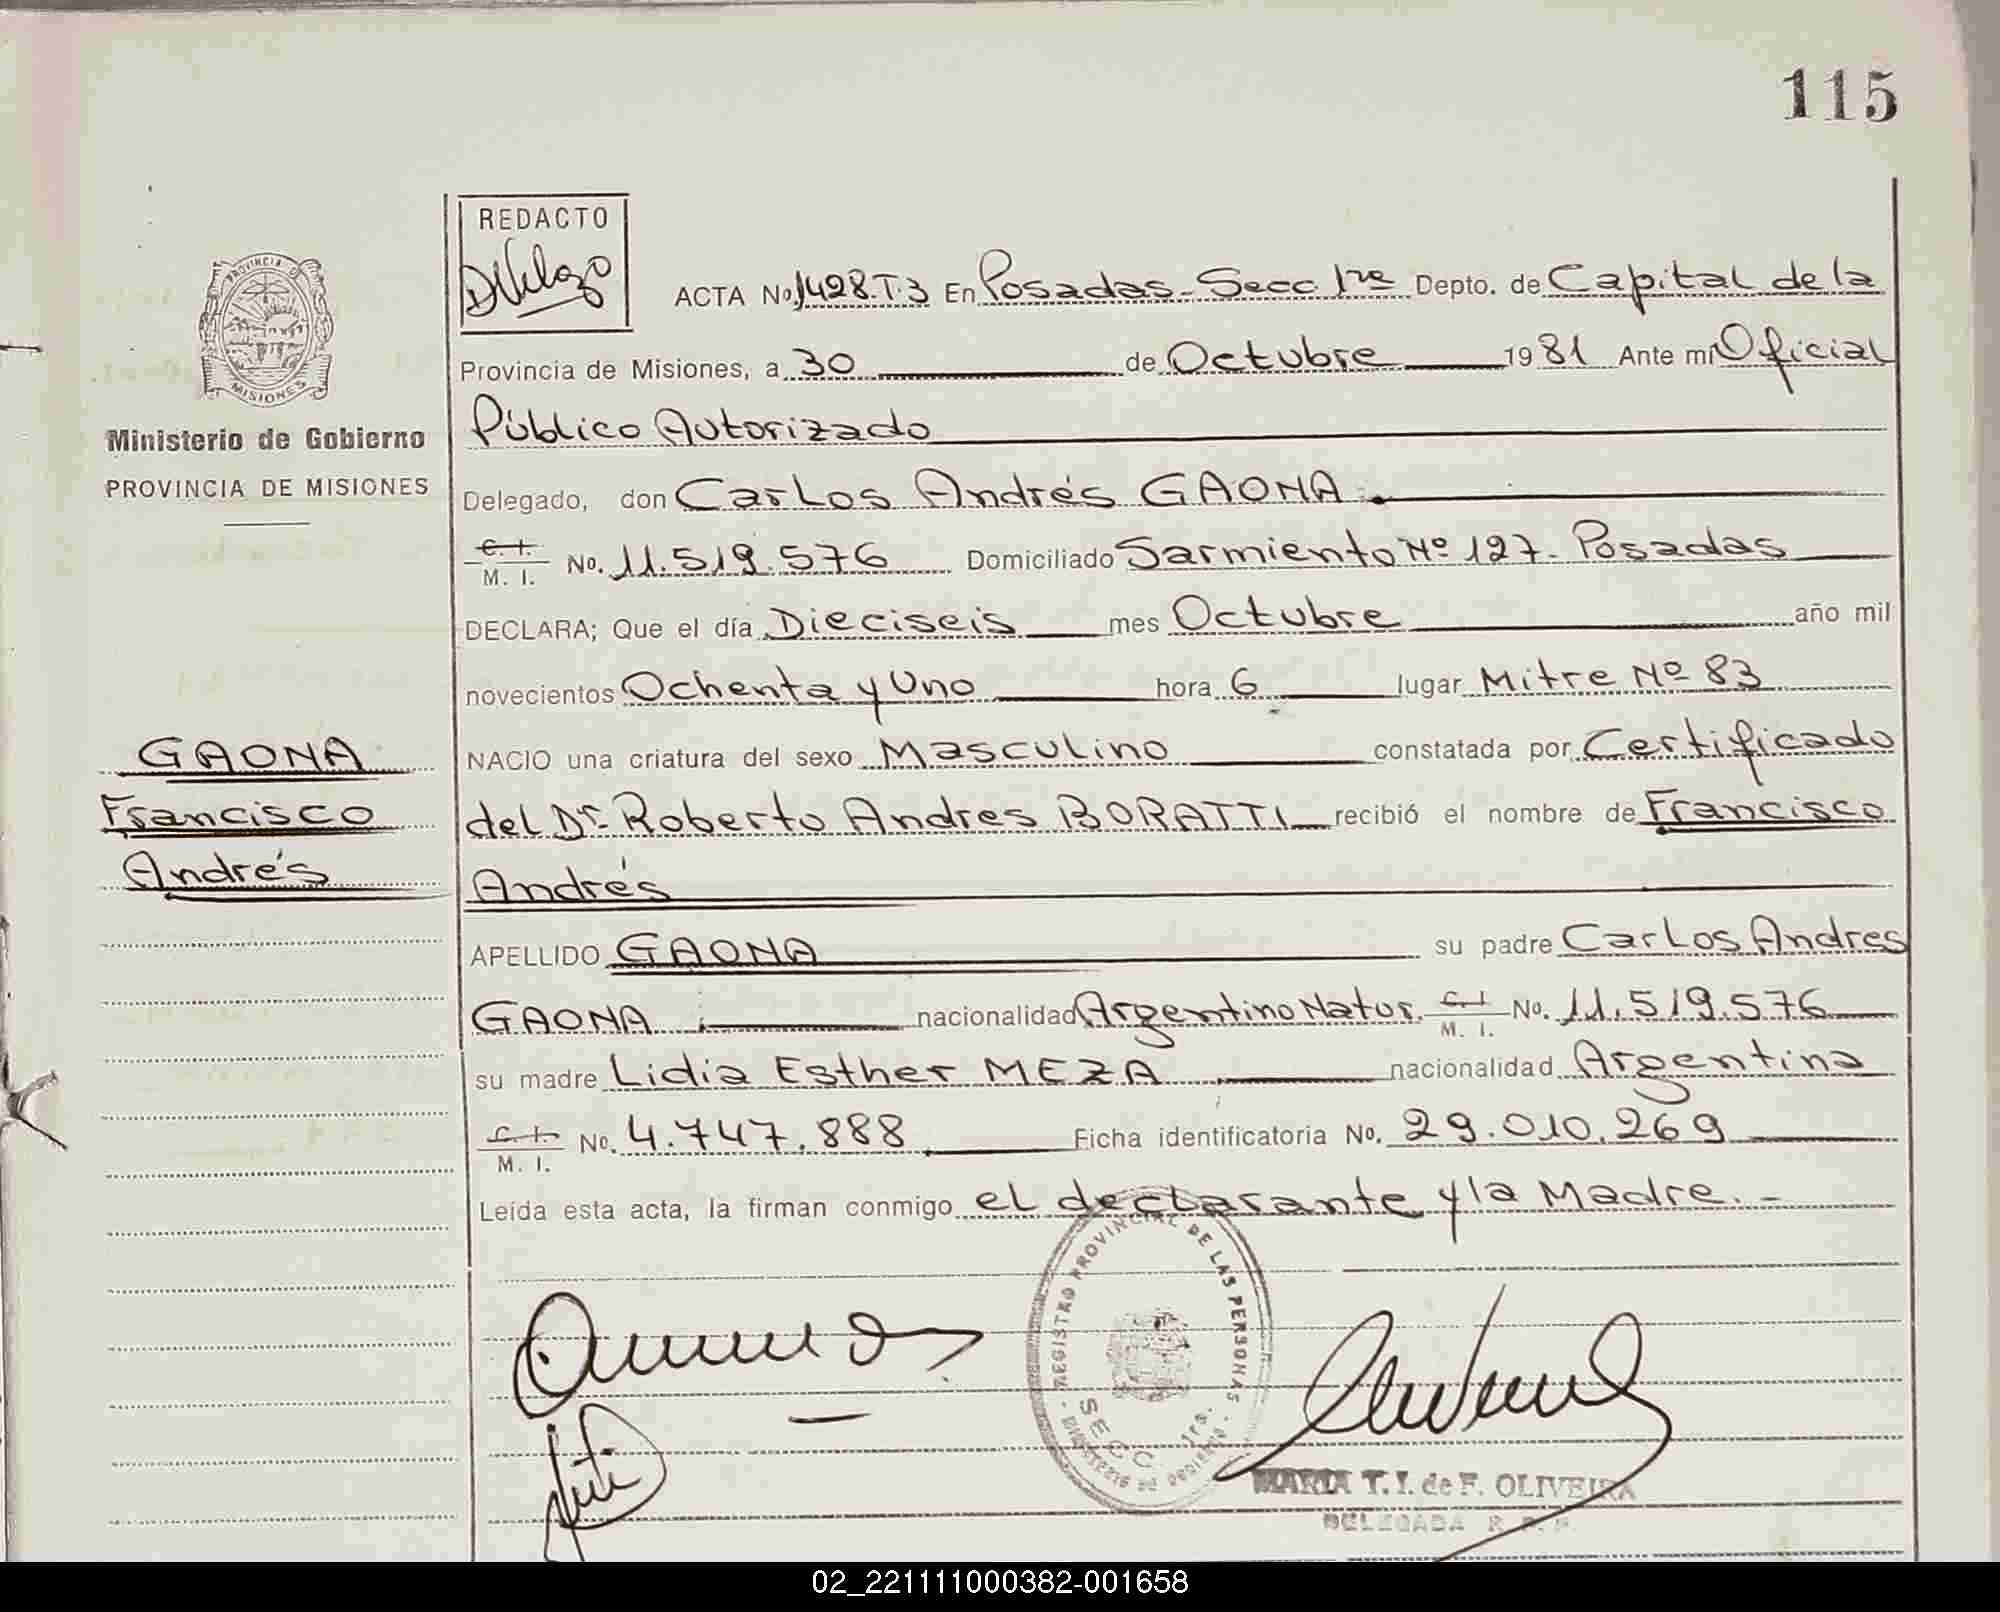 115
REDACTO
ACTA No. 1428.T.3 En Posadas-Secc 1ra Depto. de Capital de la
Provincia de Misiones, a 30 de Octubre 1981 Ante mí Oficial
Público Autorizado
PROVINCIA DE
MISIONES
Ministerio de Gobierno
PROVINCIA DE MISIONES
Delegado, don Carlos Andrés GAONA.
C. I.
M. I. No. 11.519.576 Domiciliado Sarmiento Nº 127. Posadas
DECLARA; Que el día Dieciseis mes Octubre año mil
novecientos Ochenta y Uno hora 6 lugar Mitre Nº 83
GAONA
Francisco
Andrés
NACIO una criatura del sexo Masculino constatada por Certificado
del Dr. Roberto Andres BORATTI recibió el nombre de Francisco
Andrés
APELLIDO GAONA su padre Carlos Andres
GAONA nacionalidad Argentino Natur. C. I. M. I. No. 11.519.576
su madre Lidia Esther MEZA nacionalidad Argentina
C. I.
M. I. No. 4.747.888 Ficha identificatoria No. 29.010.269
Leída esta acta, la firman conmigo el declarante y la Madre.-
REGISTRO PROVINCIAL DE LAS PERSONAS
SECC 1ra.
MINISTERIO DE GOBIERNO
MARIA T. I. de F. OLIVEIRA
DELEGADA R. P. P.
02_221111000382-001658